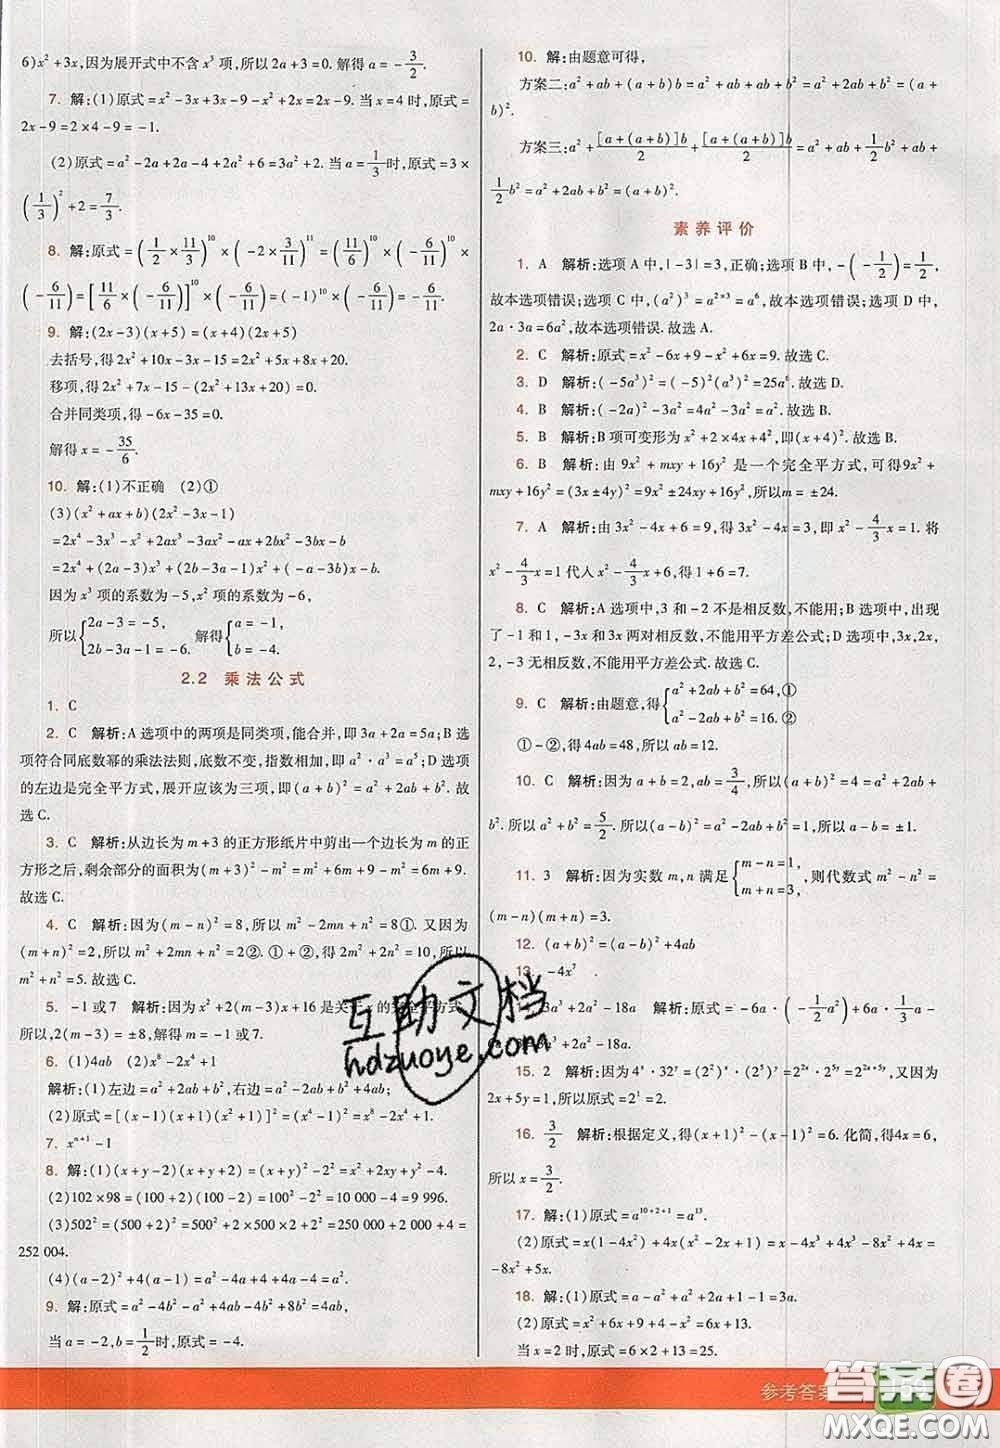 6)x²+3x,因为展开式中不含x³项,所以2a+3=0.解得a=-3/2.
7. 解:(1)原式=x²-3x+3x-9-x²+2x=2x-9.当x=4时,原式=
2x-9=2×4-9=-1.
(2)原式=a²-2a+2a-4+2a²+6=3a²+2.当a=1/3时,原式=3×
(1/3)²+2=7/3.
8. 解:原式=(1/2×11/3)¹⁰×(-2×3/11)¹¹=(11/6)¹⁰×(-6/11)¹⁰×
(-6/11)=[11/6×(-6/11)]¹⁰×(-6/11)=(-1)¹⁰×(-6/11)=-6/11.
9. 解:(2x-3)(x+5)=(x+4)(2x+5)
去括号,得2x²+10x-3x-15=2x²+5x+8x+20.
移项,得2x²+7x-15-(2x²+13x+20)=0.
合并同类项,得-6x-35=0.
解得x=-35/6.
10. 解:(1)不正确 (2)①
(3)(x²+ax+b)(2x²-3x-1)
=2x⁴-3x³-x²+2ax³-3ax²-ax+2bx²-3bx-b
=2x⁴+(2a-3)x³+(2b-3a-1)x²+(-a-3b)x-b.
因为x³项的系数为-5,x²项的系数为-6,
所以{2a-3=-5, 2b-3a-1=-6. 解得{a=-1, b=-4.
2.2 乘法公式
1. C
2. C 解析:A选项中的两项是同类项,能合并,即3a+2a=5a;B选
项符合同底数幂的乘法法则,底数不变,指数相加,即a²·a³=a⁵;D选项
的左边是完全平方式,展开应该为三项,即(a+b)²=a²+2ab+b².故
选C.
3. C 解析:从边长为m+3的正方形纸片中剪出一个边长为m的正
方形之后,剩余部分的面积为(m+3)²-m²=m²+6m+9-m²=6m+9.
故选C.
4. C 解析:因为(m-n)²=8,所以m²-2mn+n²=8①.又因为
(m+n)²=2,所以m²+2mn+n²=2②.①+②,得2m²+2n²=10,所以
m²+n²=5.故选C.
5. -1或7 解析:因为x²+2(m-3)x+16是关于x的完全平方式,
所以,2(m-3)=±8,解得m=-1或7.
6. (1)4ab (2)x⁸-2x⁴+1
解析:(1)左边=a²+2ab+b²,右边=a²-2ab+b²+4ab;
(2)原式=[(x-1)(x+1)(x²+1)]²=(x⁴-1)²=x⁸-2x⁴+1.
7. xⁿ⁺¹-1
8. 解:(1)(x+y-2)(x+y+2)=(x+y)²-2²=x²+2xy+y²-4.
(2)102×98=(100+2)(100-2)=100²-2²=10 000-4=9 996.
(3)502²=(500+2)²=500²+2×500×2+2²=250 000+2 000+4=
252 004.
(4)(a-2)²+4(a-1)=a²-4a+4+4a-4=a².
9. 解:原式=a²-4b²-a²+4ab-4b²+8b²=4ab,
当a=-2,b=1/2时,原式=-4.
10. 解:由题意可得,
方案二:a²+ab+(a+b)b=a²+ab+ab+b²=a²+2ab+b²=(a+
b)².
方案三:a²+[a+(a+b)]b/2+[a+(a+b)]b/2=a²+ab+1/2b²+ab+
1/2b²=a²+2ab+b²=(a+b)².
素养评价
1. A 解析:选项A中,|-3|=3,正确;选项B中,-(-1/2)=1/2,
故本选项错误;选项C中,(a²)³=a²ˣ³=a⁶,故本选项错误;选项D中,
2a·3a=6a²,故本选项错误.故选A.
2. C 解析:原式=x²-6x+9-x²+6x=9.故选C.
3. D 解析:(-5a³)²=(-5)²(a³)²=25a⁶.故选D.
4. B 解析:(-2a)²-3a²=4a²-3a²=a².故选B.
5. B 解析:B项可变形为x²+2×4x+4²,即(x+4)².故选B.
6. B 解析:由9x²+mxy+16y²是一个完全平方式,可得9x²+
mxy+16y²=(3x±4y)²=9x²±24xy+16y²,所以m=±24.
7. A 解析:由3x²-4x+6=9,得3x²-4x=3,即x²-4/3x=1.将
x²-4/3x=1代入x²-4/3x+6,得1+6=7.
8. C 解析:A选项中,3和-2不是相反数,不能用;B选项中,出现
了-1和1,-3x和3x两对相反数,不能用平方差公式;D选项中,3x,2x,
2,-3无相反数,不能用平方差公式.故选C.
9. C 解析:由题意,得{a²+2ab+b²=64,① a²-2ab+b²=16.②
①-②,得4ab=48,所以ab=12.
10. C 解析:因为a+b=2,ab=3/4,所以(a+b)²=4=a²+2ab+
b².所以a²+b²=5/2.所以(a-b)²=a²-2ab+b²=1.所以a-b=±1.
11. 3 解析:因为实数m,n满足{m-n=1, m+n=3, 则代数式m²-n²=
(m-n)(m+n)=3.
12. (a+b)²=(a-b)²+4ab
13. -4x⁷
3a³+2a²-18a 解析:原式=-6a·(-1/2a²)-6a·
3a³+2a²-18a.
15. 2 解析:因为4ˣ·32ʸ=(2²)ˣ·(2⁵)ʸ=2²ˣ·2⁵ʸ=2²ˣ⁺⁵ʸ,又因为
2x+5y=1,所以原式=2¹=2.
16. 3/2 解析:根据定义,得(x+1)²-(x-1)²=6.化简,得4x=6,
所以x=3/2.
17. 解:(1)原式=a¹⁰⁺²⁺¹=a¹³.
(2)原式=x(1-4x²)+4x(1-x²)=x-4x³+4x-4x³=
-8x³+5x.
18. 解:(1)原式=a-a²+a²+2a=3a.
(2)原式=x²+6x+9+x²-4-x²=x²+6x+5
当x=2时,原式=6×2+13=25.
参考答案
互助文档
hdzuoye.com
答案圈
MXQE.COM